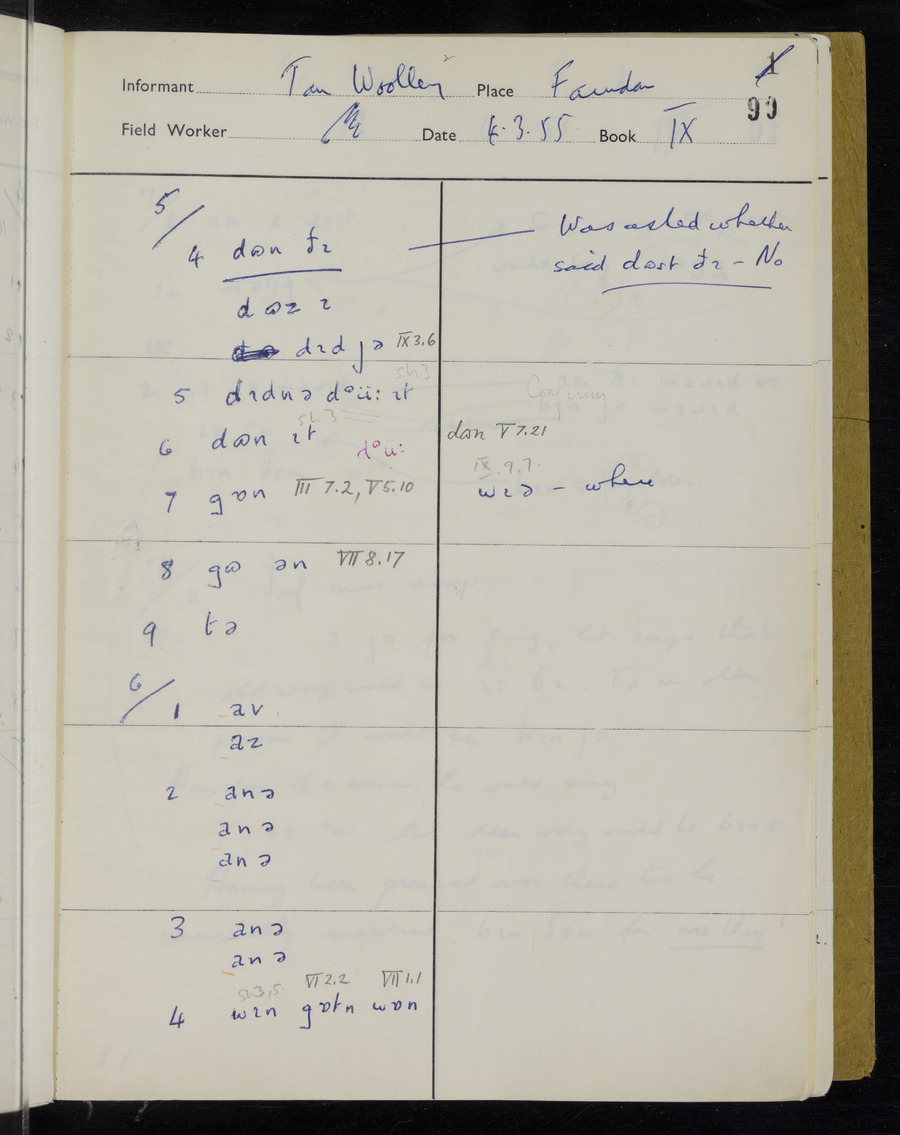 1
99
Informant Tom Woolley Place Farndon
Field Worker Date 4.3.55 Book IX
5/
4 dɷn ðɪ — Was asked whether
said dɷst ðɪ – No
dɷz ɪ
dɪd jə IX 3.6
sh3
5 dɪdnə dᵊü: ɪt Confirm
sh.3
6 dɷn ɪt dᵊü: dɷn V 7.21
IX.9.7.
7 gɒn III 7.2, V 5.10 wɪə – where
8 gɷ ən VII 8.17
9 tə
6/
1 av
az
2 anə
anə
anə
3 anə
anə
sh.3,5. VI 2.2 VII 1.1
4 wɪn gɒtn wɒn